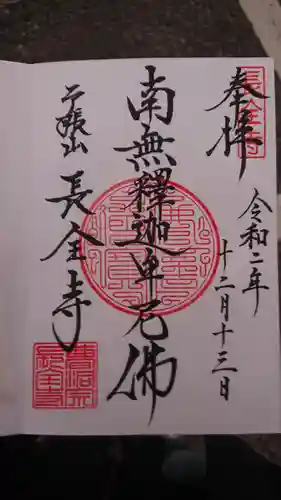 奉拝
令和二年
十二月十三日
南無釋迦牟尼佛
長全寺
長全寺